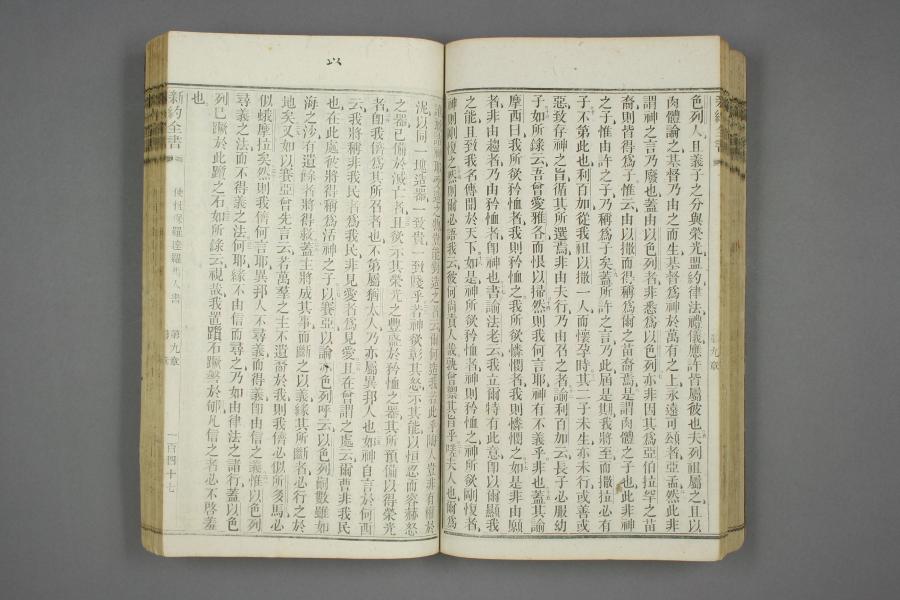 新約全書
第九章
色列人且義子之分與榮光盟約律法禮儀應許皆屬彼也夫列祖屬之且以
肉體論之基督乃由之而生基督為神於萬有之上永遠可頌者亞孟然此非
謂神之言乃廢也蓋由以色列者非悉為以色列亦非因其為亞伯拉罕之苗
裔則皆得為子惟云由以撒而得稱為爾之苗裔焉是謂肉體之子也此非神
之子惟由許之子乃稱為子矣蓋所許之言乃此屆是期我將至而撒拉必有
子不第此也利百加從我祖以撒一人而懷孕時其二子未生亦未行或善或
惡致存神之旨循其所選焉非由夫行乃由召之者諭利百加云長子必服幼
子如所錄云吾曾愛雅各而恨以掃然則我何言耶神有不義乎非也蓋其諭
摩西曰我所欲矜恤者我則矜恤之我所欲憐憫者我則憐憫之如是非由願
者非由趨者乃由矜恤者即神也書諭法老云我立爾特有此意即以爾顯我
之能且致我名傳聞於天下如是神所欲矜恤者神則矜恤之神所欲剛愎者
神則剛愎之然則爾必語我云彼何尚責人哉孰曾禦其旨乎噗夫人也爾為
泥以同一塊造器一致貴一致賤乎若神欲彰其怒示其能以恒忍而容赫怒
之器已備於滅亡者且欲示其榮光之豐盛於矜恤之器其所預備以得榮光
者即我儕為其所召者也不第屬猶太人乃亦屬異邦人也如神自言於何西
云我將稱非我民者為我民非見愛者為見愛且在曾謂之處云爾曹非我民
也在此處彼將得稱為活神之子以賽亞以諭以色列呼云以色列嗣數雖如
海之沙有遺餘者將得救蓋主將成其事而斷之以義緣其所斷者必行之於
地矣又如以賽亞曾先言云若萬羣之主不遺裔於我則我儕必似所多馬必
似蛾摩拉矣然則我儕何言耶異邦人不尋義而得義即由信之義惟以色列
尋義之法而不得義之法何耶緣不由信而尋之乃如由律法之諸行蓋以色
列已蹶於此躓之石如所錄云視哉我置躓石蹶磐於郇凡信之者必不啟羞
也
新約全書
使徒保羅達羅馬人書
第九章
一百四十七